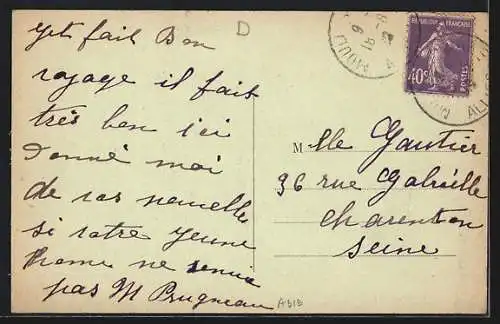 yets fait Bon
voyage il fait
très bon ici
Donné moi
de vos nouvelles
si votre jeune
home ne
pas M Prugneau
D
RÉPUBLIQUE FRANÇAISE
40c
POSTES
Mlle Gautier
96 rue Gabrielle
Charenton
Seine
A313